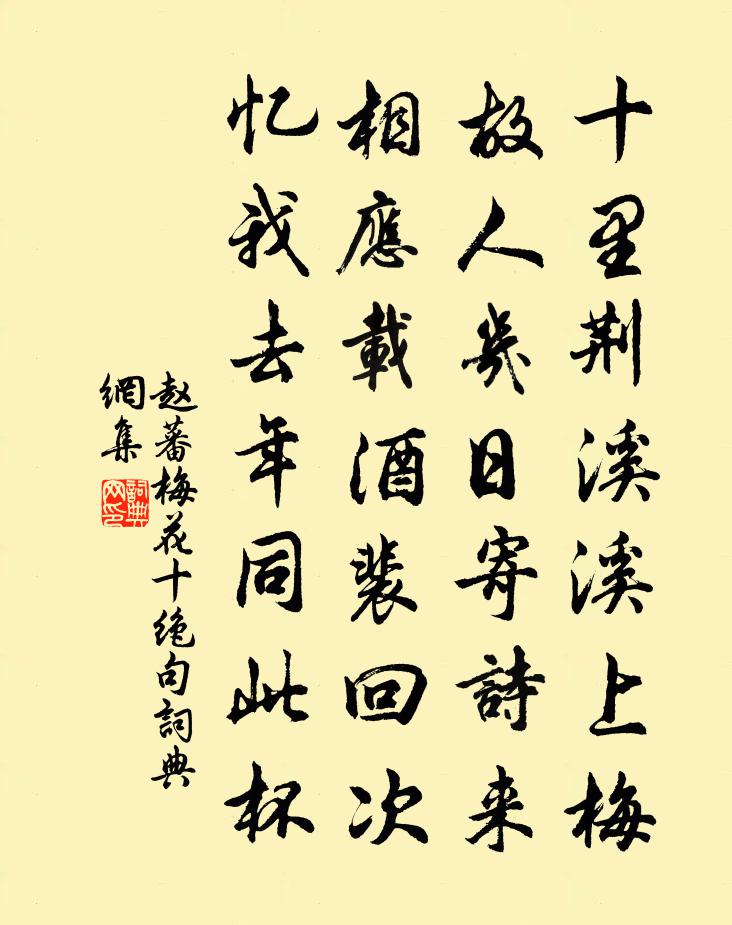 十里荆溪溪上梅
故人幾日寄詩来
相應載酒裴回次
忆我去年同此杯
赵蕃梅花十绝句詞典
網集
詞典
网印